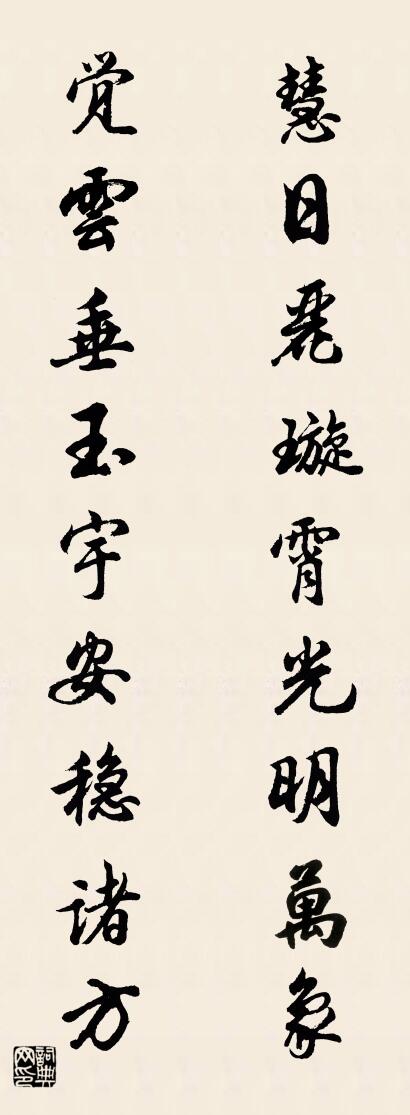 慧日麗璇霄光明萬象
覺雲垂玉宇安穏諸方
詞典网印